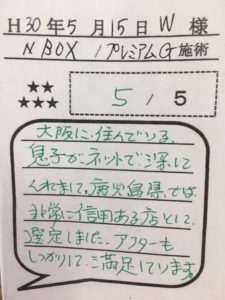 H30年5月15日 W 様
N BOX /プレミアムG施術
★★
★★★
5 / 5
大阪に住んでいる、
息子がネットで探して
くれまして。鹿児島県では
非常に信用ある店として
選定しました。アフターも
しっかりして満足しています。